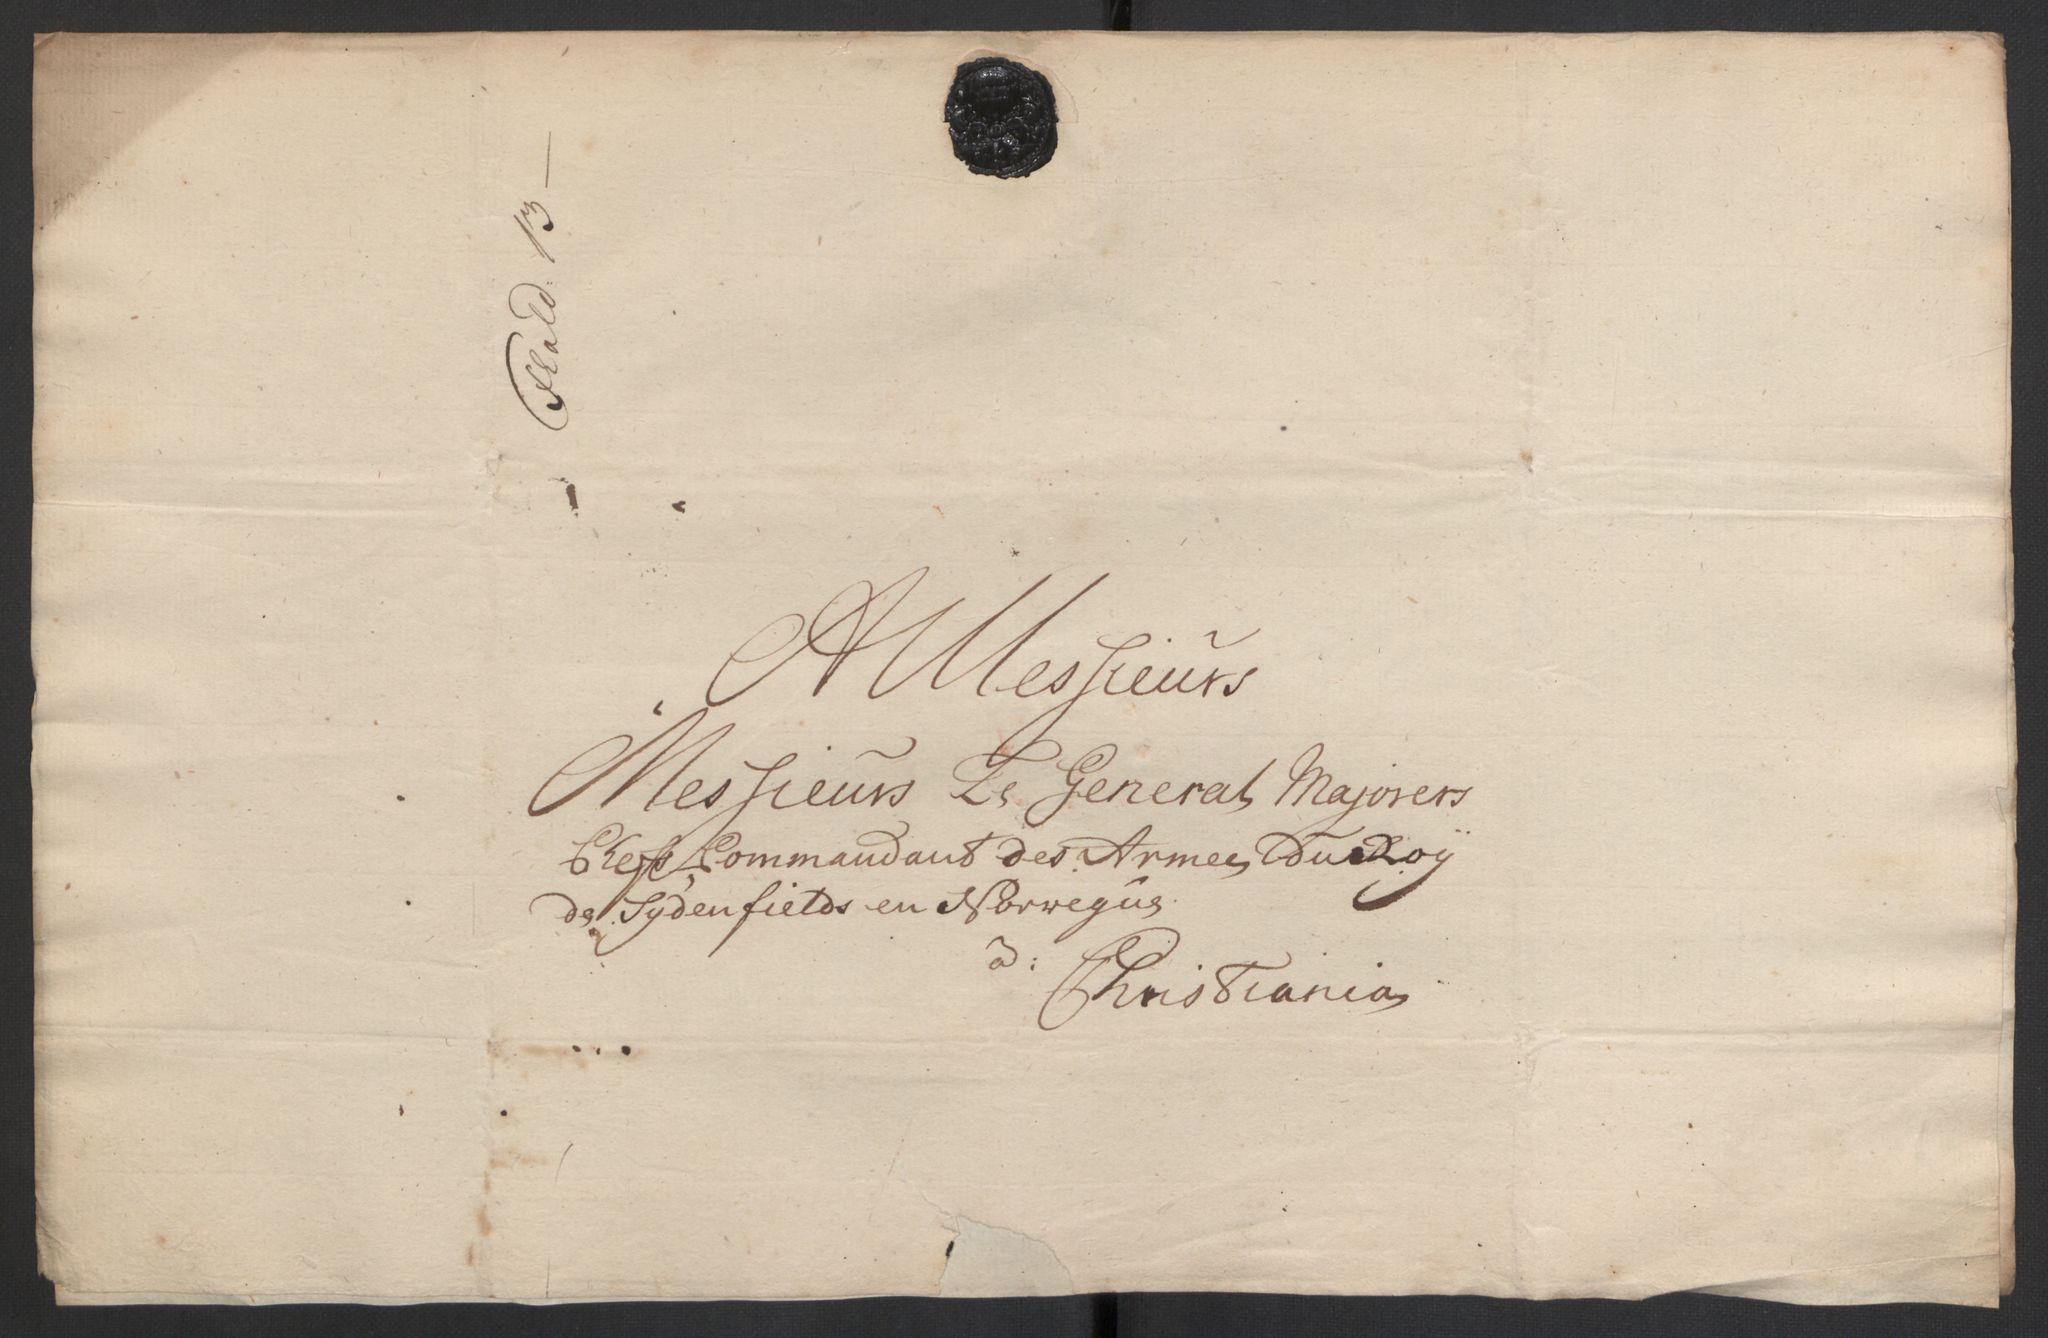 FRald: 13 —
A Messieurs
Messieurs Le General Majorers
Chefs Commandant des Armee Du Roÿ
de Sydenfields en Norwegue
a: Christiania